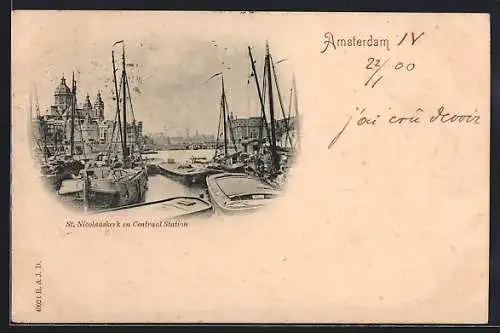 Amsterdam IV
22/1 00
j'ai crû devoir
St. Nicolaaskerk en Centraal Station
4921 R. & J. D.